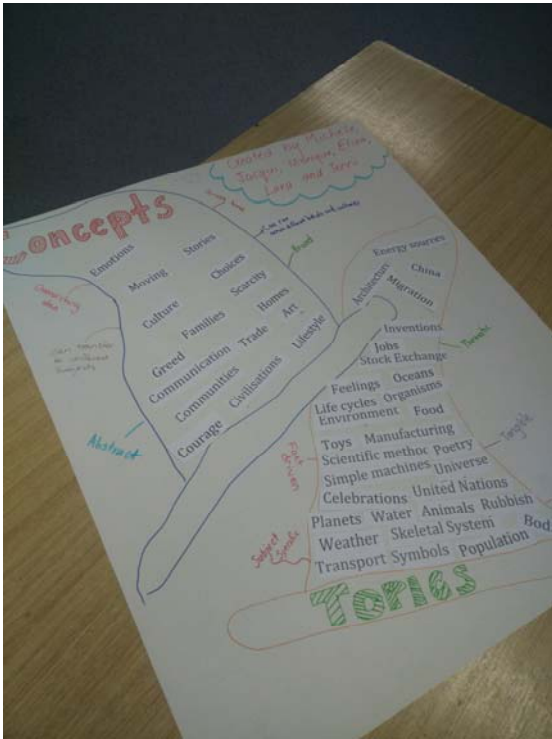 Created by Michele,
Jacqui, Monique, Elina,
Lara and Terri
Concepts
Emotions
Stories
Moving
Choices
Culture
Scarcity
Families
Homes
Greed
Trade
Art
Communication
Lifestyle
Communities
Civilisations
Courage
Overarching
idea
can transfer
Abstract
Broad
Energy sources
Architecture
China
Migration
Inventions
Jobs
Stock Exchange
Feelings Oceans
Life cycles Organisms
Environment Food
Toys Manufacturing
Scientific method Poetry
Simple machines Universe
Celebrations United Nations
Planets Water Animals Rubbish
Weather Skeletal System Bod
Transport Symbols Population
Fact
driven
Tangible
Subject
Specific
Topics